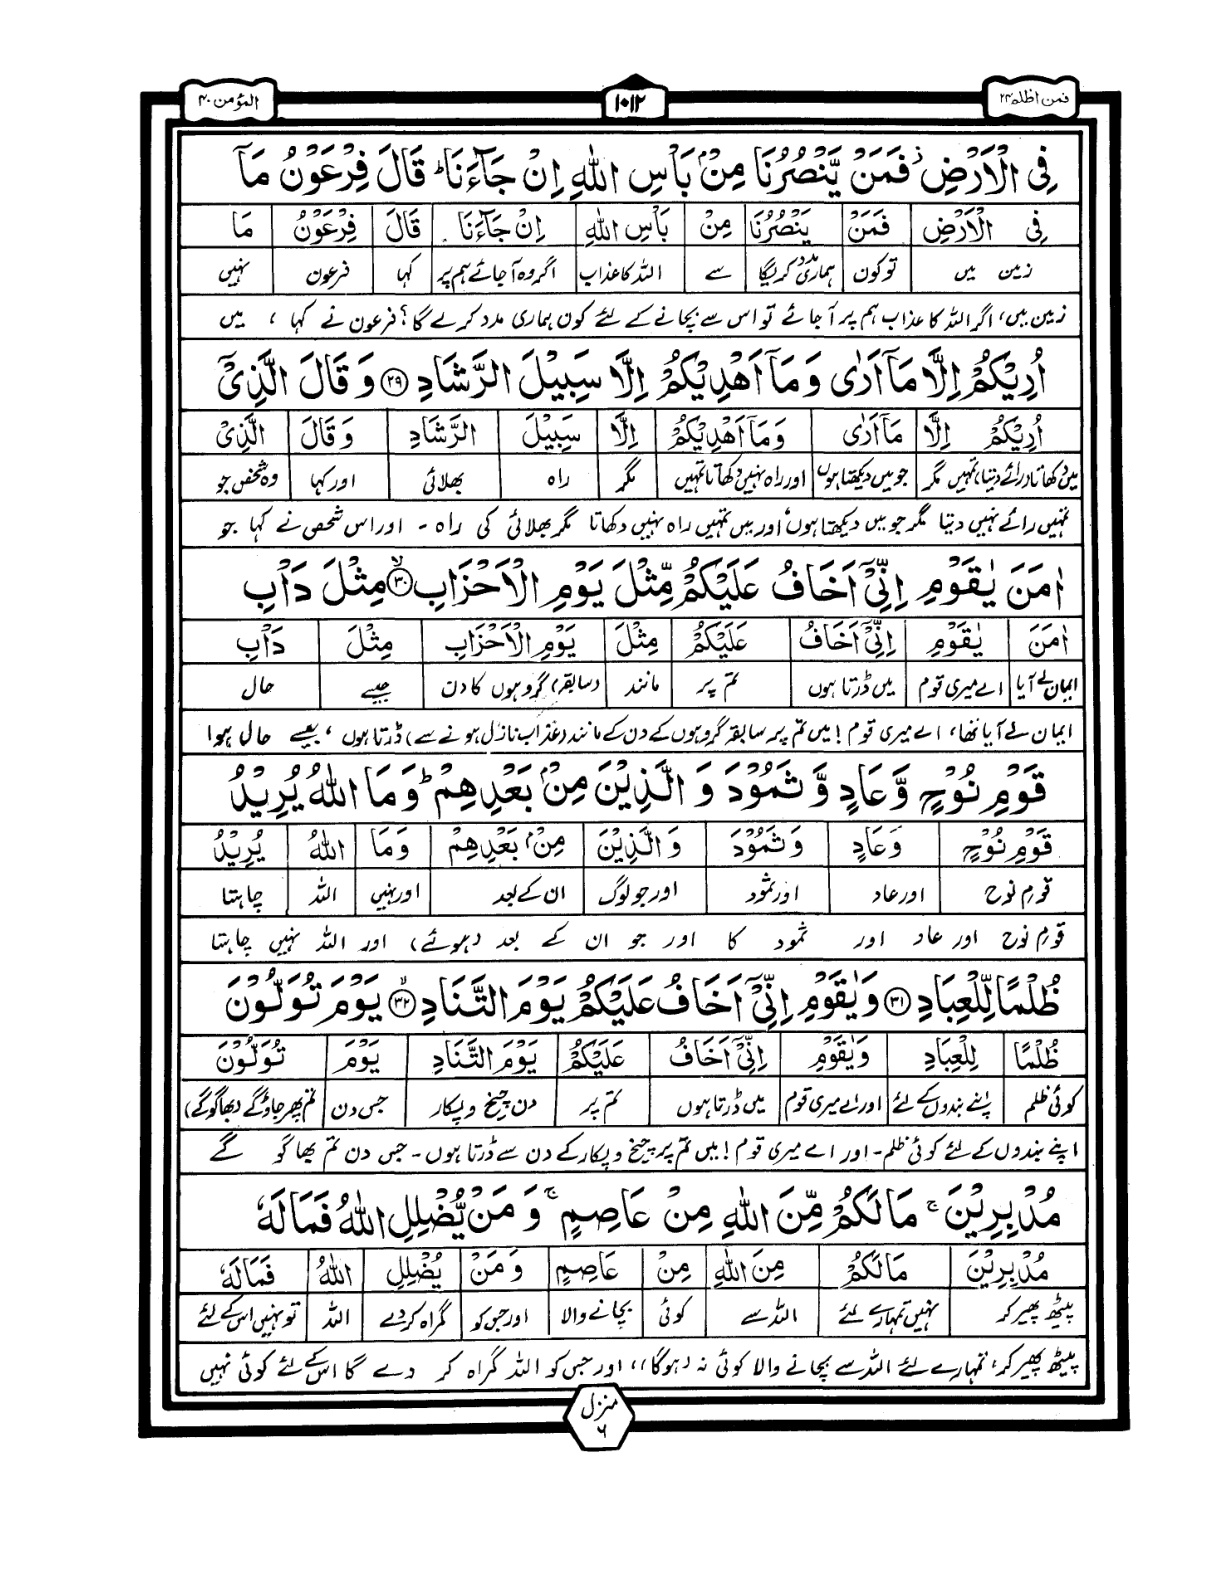 المؤمن ۴۰
۱۰۱۲
فمن اظلم ۲۴
فِی الْاَرْضِ فَمَنْ یَّنْصُرُنَا مِنْۢ بَاْسِ اللّٰهِ اِنْ جَآءَنَا ؕ قَالَ فِرْعَوْنُ مَاۤ
فِی الْاَرْضِ فَمَنْ یَنْصُرُنَا مِنْۢ بَاْسِ اللّٰهِ اِنْ جَآءَنَا قَالَ فِرْعَوْنُ مَا
زمین میں تو کون ہماری مدد کریگا سے اللہ کا عذاب اگر وہ آ جائے ہم پر کہا فرعون نہیں
زمین میں، اگر اللہ کا عذاب ہم پر آ جائے تو اس سے بچانے کے لئے کون ہماری مدد کرے گا؟ فرعون نے کہا ، میں
اُرِیْكُمْ اِلَّا مَاۤ اَرٰی وَ مَاۤ اَهْدِیْكُمْ اِلَّا سَبِیْلَ الرَّشَادِ ۲۹ وَ قَالَ الَّذِیْۤ
اُرِیْكُمْ اِلَّا مَاۤ اَرٰی وَ مَاۤ اَهْدِیْكُمْ اِلَّا سَبِیْلَ الرَّشَادِ وَ قَالَ الَّذِیْۤ
میں دکھاتا (رائے دیتا) تمہیں مگر جو میں دیکھتا ہوں اور راہ نہیں دکھاتا تمہیں مگر راہ بھلائی اور کہا وہ شخص جو
تمہیں رائے نہیں دیتا مگر جو میں دیکھتا ہوں اور میں تمہیں راہ نہیں دکھاتا مگر بھلائی کی راہ - اور اس شخص نے کہا جو
اٰمَنَ یٰقَوْمِ اِنِّیْۤ اَخَافُ عَلَیْكُمْ مِّثْلَ یَوْمِ الْاَحْزَابِ ۙ۳۰ مِثْلَ دَاْبِ
اٰمَنَ یٰقَوْمِ اِنِّیْۤ اَخَافُ عَلَیْكُمْ مِثْلَ یَوْمِ الْاَحْزَابِ مِثْلَ دَاْبِ
ایمان لے آیا اے میری قوم میں ڈرتا ہوں تم پر مانند (سابقہ) گروہوں کا دن جیسے حال
ایمان لے آیا تھا، اے میری قوم! میں تم پر سابقہ گروہوں کے دن کے مانند (عذاب نازل ہونے سے) ڈرتا ہوں ، جیسے حال ہوا
قَوْمِ نُوْحٍ وَّ عَادٍ وَّ ثَمُوْدَ وَ الَّذِیْنَ مِنْۢ بَعْدِهِمْ ؕ وَ مَا اللّٰهُ یُرِیْدُ
قَوْمِ نُوْحٍ وَ عَادٍ وَ ثَمُوْدَ وَ الَّذِیْنَ مِنْۢ بَعْدِهِمْ وَ مَا اللّٰهُ یُرِیْدُ
قوم نوح اور عاد اور ثمود اور جو لوگ ان کے بعد اور نہیں اللہ چاہتا
قوم نوح اور عاد اور ثمود کا اور جو ان کے بعد (ہوئے) اور اللہ نہیں چاہتا
ظُلْمًا لِّلْعِبَادِ ۳۱ وَ یٰقَوْمِ اِنِّیْۤ اَخَافُ عَلَیْكُمْ یَوْمَ التَّنَادِ ۙ۳۲ یَوْمَ تُوَلُّوْنَ
ظُلْمًا لِلْعِبَادِ وَ یٰقَوْمِ اِنِّیْۤ اَخَافُ عَلَیْكُمْ یَوْمَ التَّنَادِ یَوْمَ تُوَلُّوْنَ
کوئی ظلم اپنے بندوں کے لئے اور اے میری قوم میں ڈرتا ہوں تم پر دن چیخ و پکار جس دن تم پھر جاؤگے (بھاگوگے)
اپنے بندوں کے لئے کوئی ظلم - اور اے میری قوم! میں تم پر چیخ و پکار کے دن سے ڈرتا ہوں - جس دن تم بھاگو گے
مُدْبِرِیْنَ ۚ مَا لَكُمْ مِّنَ اللّٰهِ مِنْ عَاصِمٍ ۚ وَ مَنْ یُّضْلِلِ اللّٰهُ فَمَا لَهٗ
مُدْبِرِیْنَ مَا لَكُمْ مِنَ اللّٰهِ مِنْ عَاصِمٍ وَ مَنْ یُضْلِلِ اللّٰهُ فَمَا لَهٗ
پیٹھ پھیر کر نہیں تمہارے لئے اللہ سے کوئی بچانے والا اور جس کو گمراہ کردے اللہ تو نہیں اس کے لئے
پیٹھ پھیر کر، تمہارے لئے اللہ سے بچانے والا کوئی نہ (ہوگا)، اور جس کو اللہ گمراہ کر دے گا اس کے لئے کوئی نہیں
منزل
۶